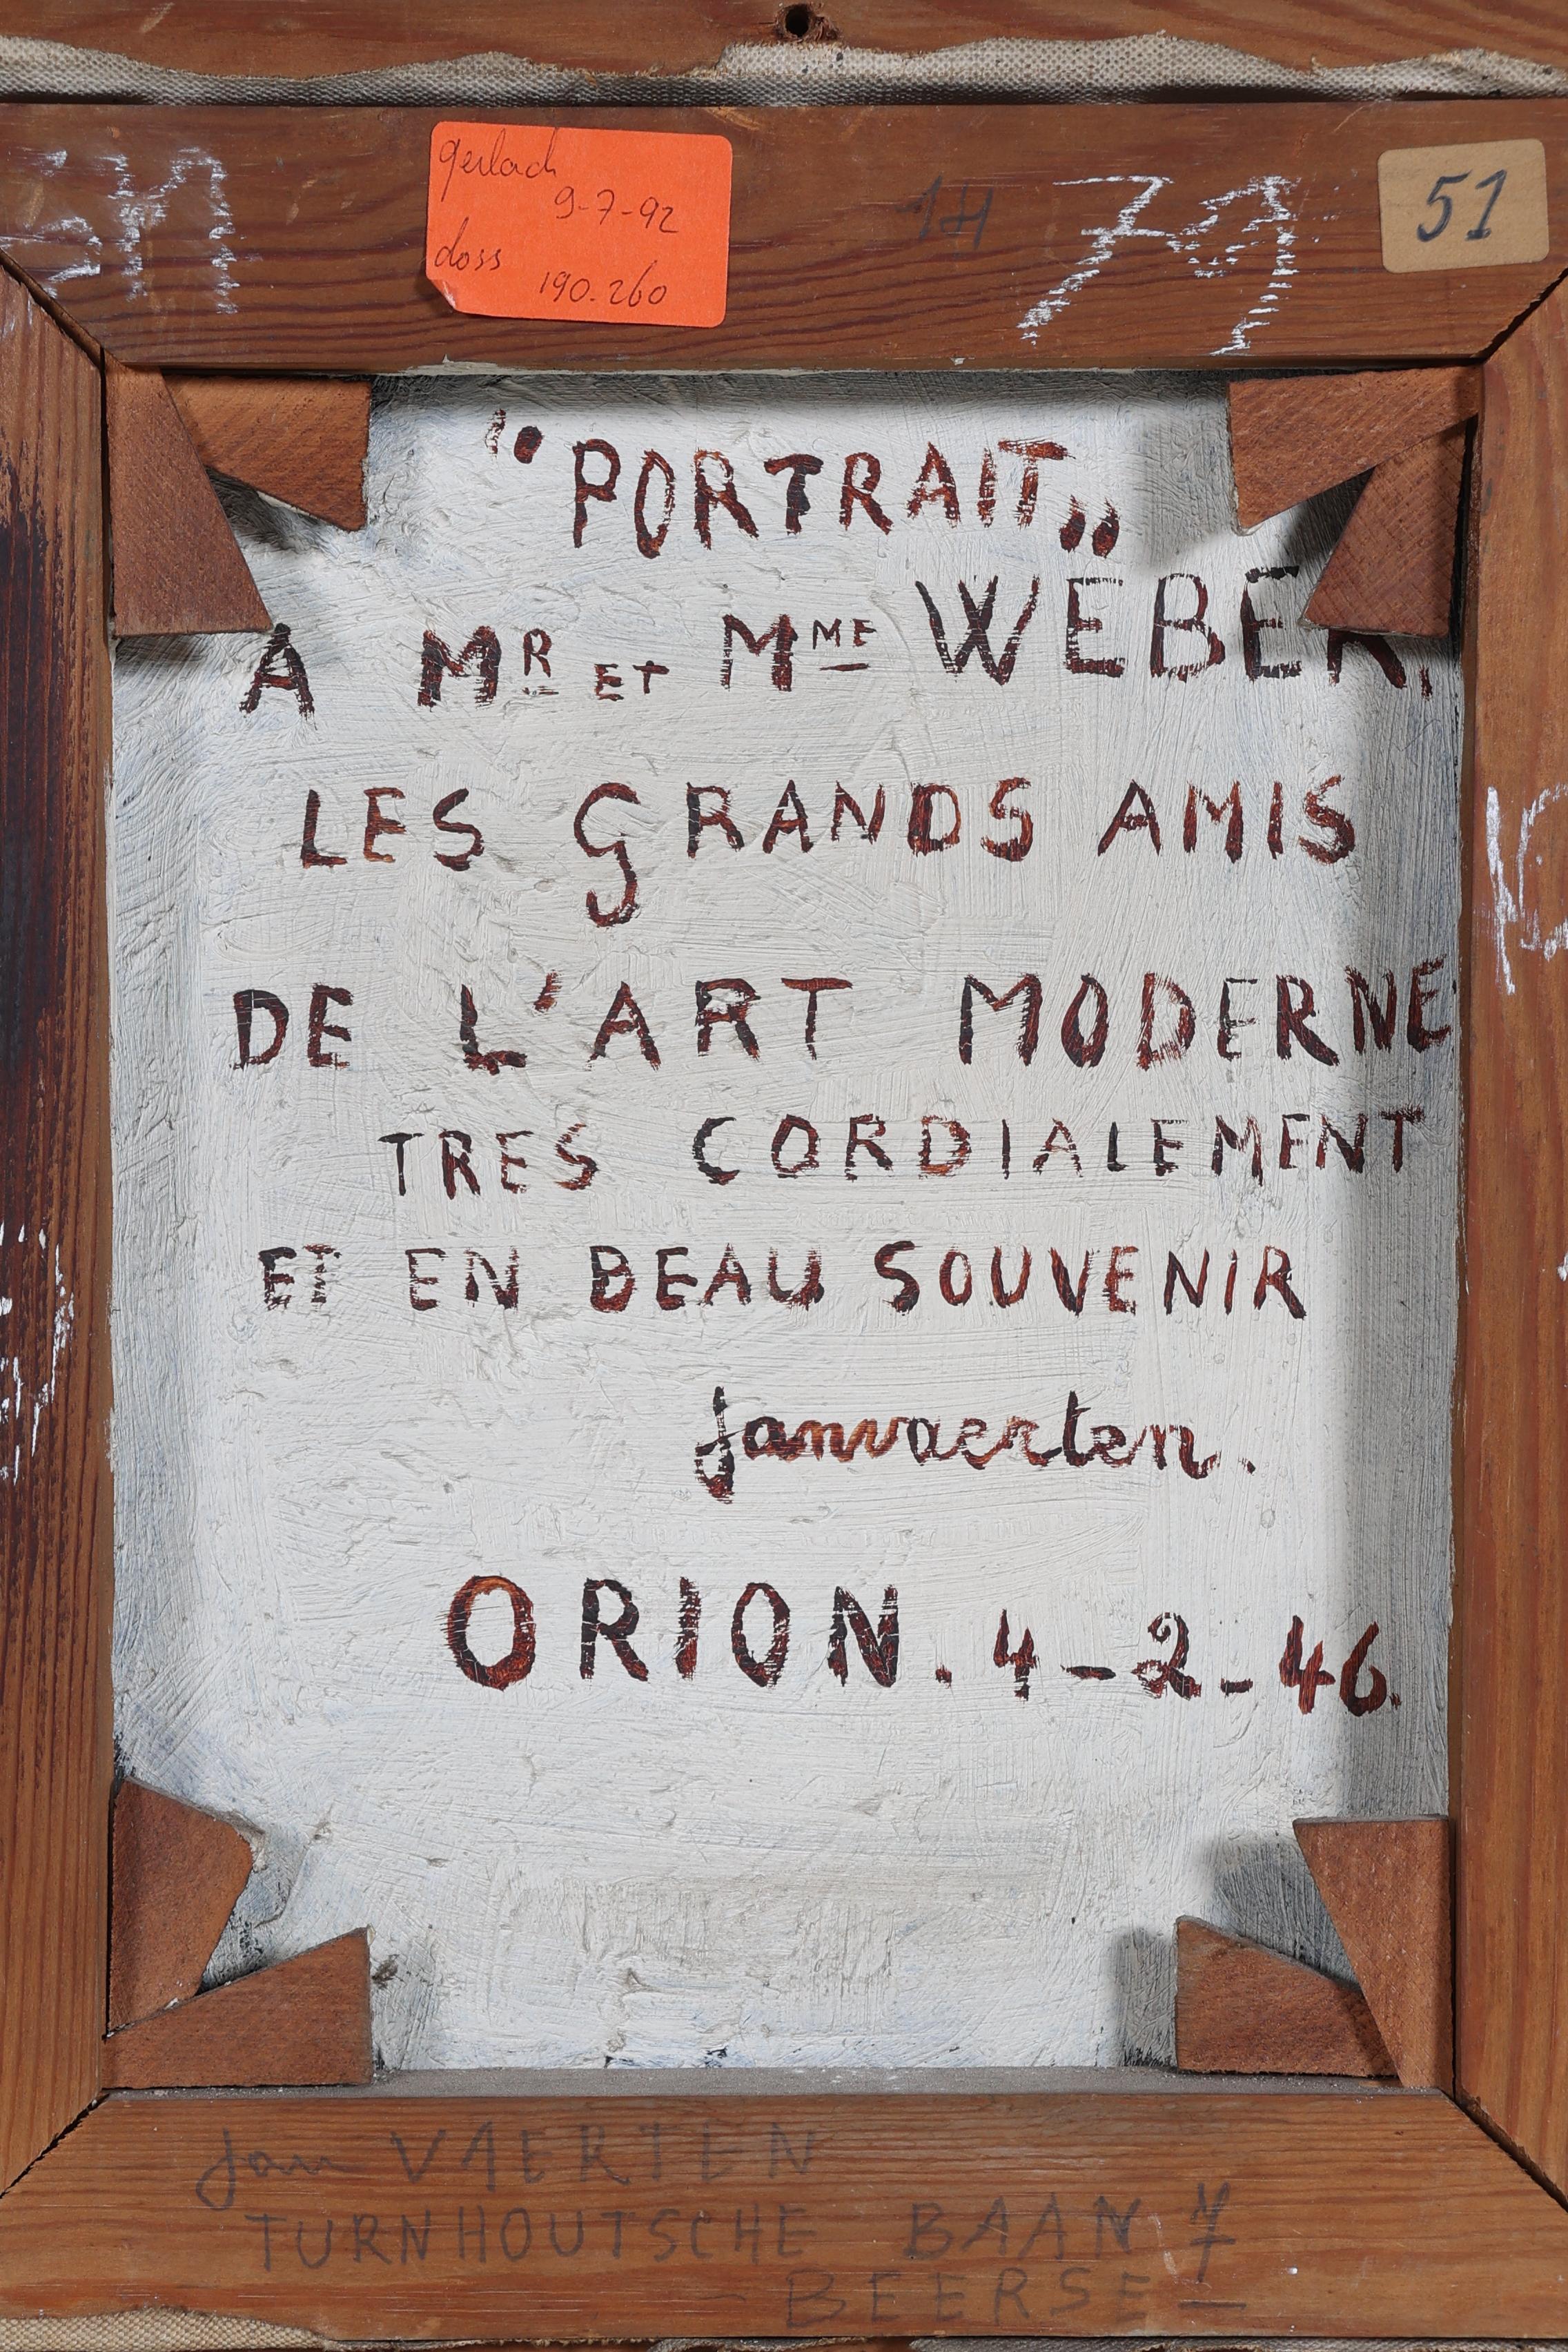 gerlach
9-7-92
doss
190.260
14
79
51
"PORTRAIT„
A MR ET MME WEBER.
LES GRANDS AMIS
DE L'ART MODERNE
TRES CORDIALEMENT
ET EN BEAU SOUVENIR
Janvaerten.
ORION. 4-2-46.
Jan VAERTEN
TURNHOUTSCHE BAAN
BEERSE